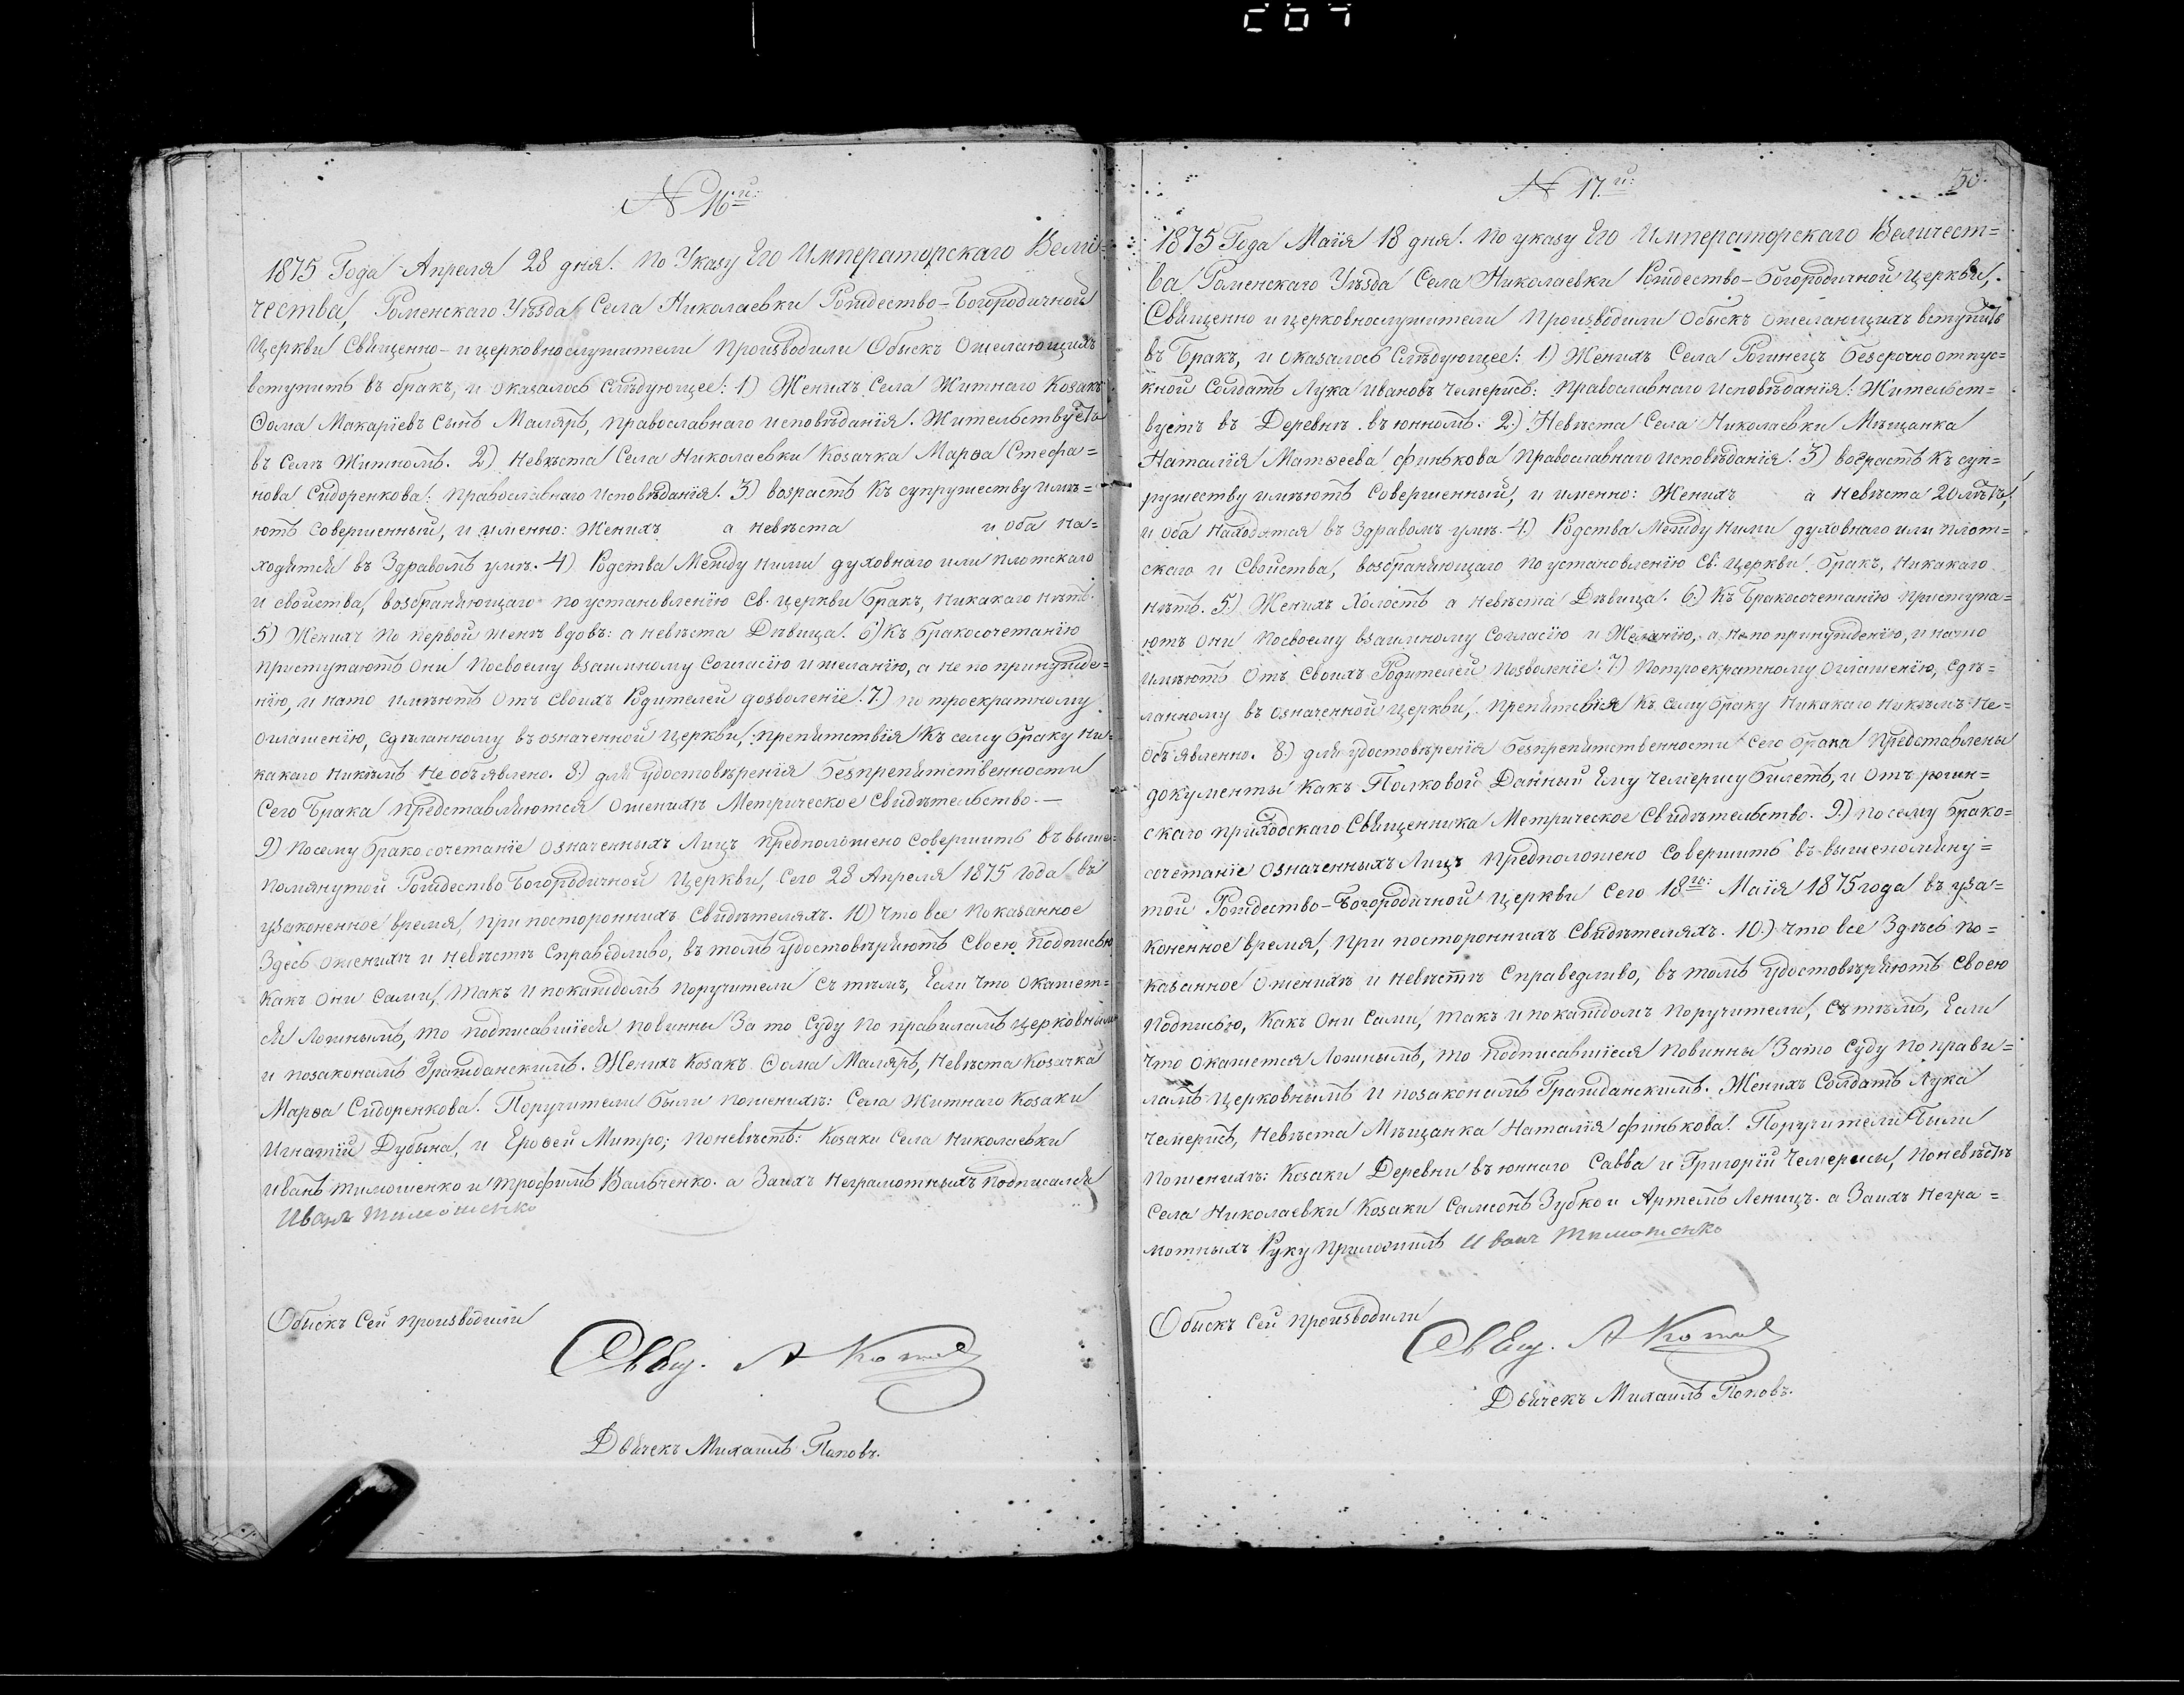 N 16й:
1875 Года Апреля 28 дня. По Указу Его Императорскаго Вели=
чества, Роменскаго Уѣзда, Села Николаевки Рождество-Богородичной
Церкви Священно- и церковнослужители производили Обыскъ Ожелающихъ
вступить въ бракъ, и оказалось слѣдующее: 1) Женихъ Села Житнаго Козакъ
Ѳома Макаріевъ сынъ Маляръ, православнаго исповѣданія. Жительствуетъ
въ селѣ Житномъ. 2) Невѣста Села Николаевки Козачка Марѳа Стефа=
нова Сидоренкова: православнаго исповѣданія. 3) возрастъ къ супружеству имѣ=
ютъ совершенный, и именно: Женихъ а невѣста и оба на=
ходятся въ здравомъ умѣ. 4) Родства Между ними духовнаго или плотскаго
и свойства, возбраняющаго по установленію Св. церкви бракъ, никакого нѣтъ.
5) Женихъ по первой женѣ вдовъ: а невѣста Дѣвица. 6) Къ бракосочетанію
приступаютъ они посвоему взаимному согласію и желанію, а не по принужде=
нію, и нато имѣютъ отъ своихъ Родителей дозволеніе. 7.) по троекратному
оглашенію, сдѣланному въ означенной церкви, препятствія къ сему браку ни=
какаго никѣмъ не объявлено. 8.) для удостовѣренія безпрепятственности
сего брака представляются Ожених​ѣ Метрическое свидѣтельство. —
9) Посему бракосочетаніе означенныхъ Лицъ предположено совершить въ выше=
помянутой Рождество Богородичной Церкви, сего 28 Апреля 1875 года въ
узаконенное время, при постороннихъ свидѣтеляхъ. 10) Что все показанное
Здесь ожених​ѣ и невѣстѣ справедливо, въ томъ удостовѣряютъ своею подписью
какъ они сами, такъ и покаждомъ поручители съ тѣмъ, Если что окажет=
ся ложнымъ, то подписавшіеся повинны за то суду по правиламъ церковнымъ
и позаконамъ Гражданскимъ. Женихъ Козакъ Ѳома Маляръ, Невѣста Козачка
Марѳа Сидоренкова. Поручители были поженихѣ: Села Житнаго Козаки
Игнатій Дубына, и Ерофей Митро; поневѣстѣ: Козаки села Николаевки
Иванъ Тимошенко и Трофимъ Вальченко. а Заихъ неграмотныхъ подписался
Иванъ Тимошенко
Обыскъ сей производили
Свящ. А Котля
Дьячекъ Михаилъ Поповъ.
N 17.й:
50.
1875 Года Маія 18 дня. По указу Его Императорскаго Величест=
ва Роменскаго Уѣзда Села Николаевки Рождество-Богородичной Церкви,
Священно и церковнослужители производили Обыскъ Ожелающихъ вступить
въ Бракъ, и оказалось слѣдующее: 1) Женихъ Села Рогинецъ безсрочноотпус=
кной Солдатъ Лука Ивановъ Чемерисъ: православнаго исповѣданія: Жительст=
вуетъ въ Деревнѣ. въюнномъ. 2.) Невѣста Села Николаевки Мѣщанка
Наталія Матѳеева Финькова православнаго исповѣданія. 3) возрастъ къ суп=
ружеству имѣютъ совершенный, и именно: Женихъ а невѣста 20 лѣтъ,
и оба находятся въ здравомъ умѣ. 4.) Родства Между ними духовнаго или плот=
скаго и свойства, возбраняющаго по установленію Св. церкви бракъ, никакаго
нѣтъ. 5.) Женихъ Холостъ а невѣста Дѣвица. 6.) Къ Бракосочетанію приступа=
ютъ они посвоему взаимному согласію и Желанію, а непо принужденію, и нато
имѣютъ отъ своихъ Родителей позволеніе. 7.) потроекратному оглашенію, сдѣ=
ланному въ означенной церкви, препятствія къ сему браку никакаго никѣмъ не=
объявленно. 8.) для удостовѣренія безпрепятственности сего брака представлены
документы какъ Полковой Данный Ему Чемерису билетъ, и отъ рогин=
скаго приходскаго Священника Метрическое свидѣтельство. 9.) посему брако=
сочетаніе означенныхъ Лицъ предположено совершить въ вышепомяну=
той Рождество-Богородичной церкви сего 18го: Маія 1875 года въ уза=
коненное время, при постороннихъ свидѣтеляхъ. 10.) Что все Здѣсь по=
казанное ожених​ѣ и невѣстѣ справедливо, въ томъ удостовѣряютъ своею
подписью, какъ они сами, такъ и покаждомъ поручители, съ тѣмъ, Если
что окажется Ложнымъ, то подписавшіеся повинны Зато суду по прави=
ламъ церковнымъ и позаконамъ Гражданскимъ. Женихъ Солдатъ Лука
Чемерисъ, Невѣста Мѣщанка Наталія Финькова. Поручители были
поженихѣ: Козаки Деревни въюннаго Савва и Григорій Чемерисы, поневѣстѣ
села Николаевки Козаки Самсонъ Зубко и Артемъ Леницъ. а Заихъ негра=
мотныхъ Руку приложилъ Иванъ Тимошенко
Обыскъ сей производили
Свящ. А Котля
Дьячекъ Михаилъ Поповъ.